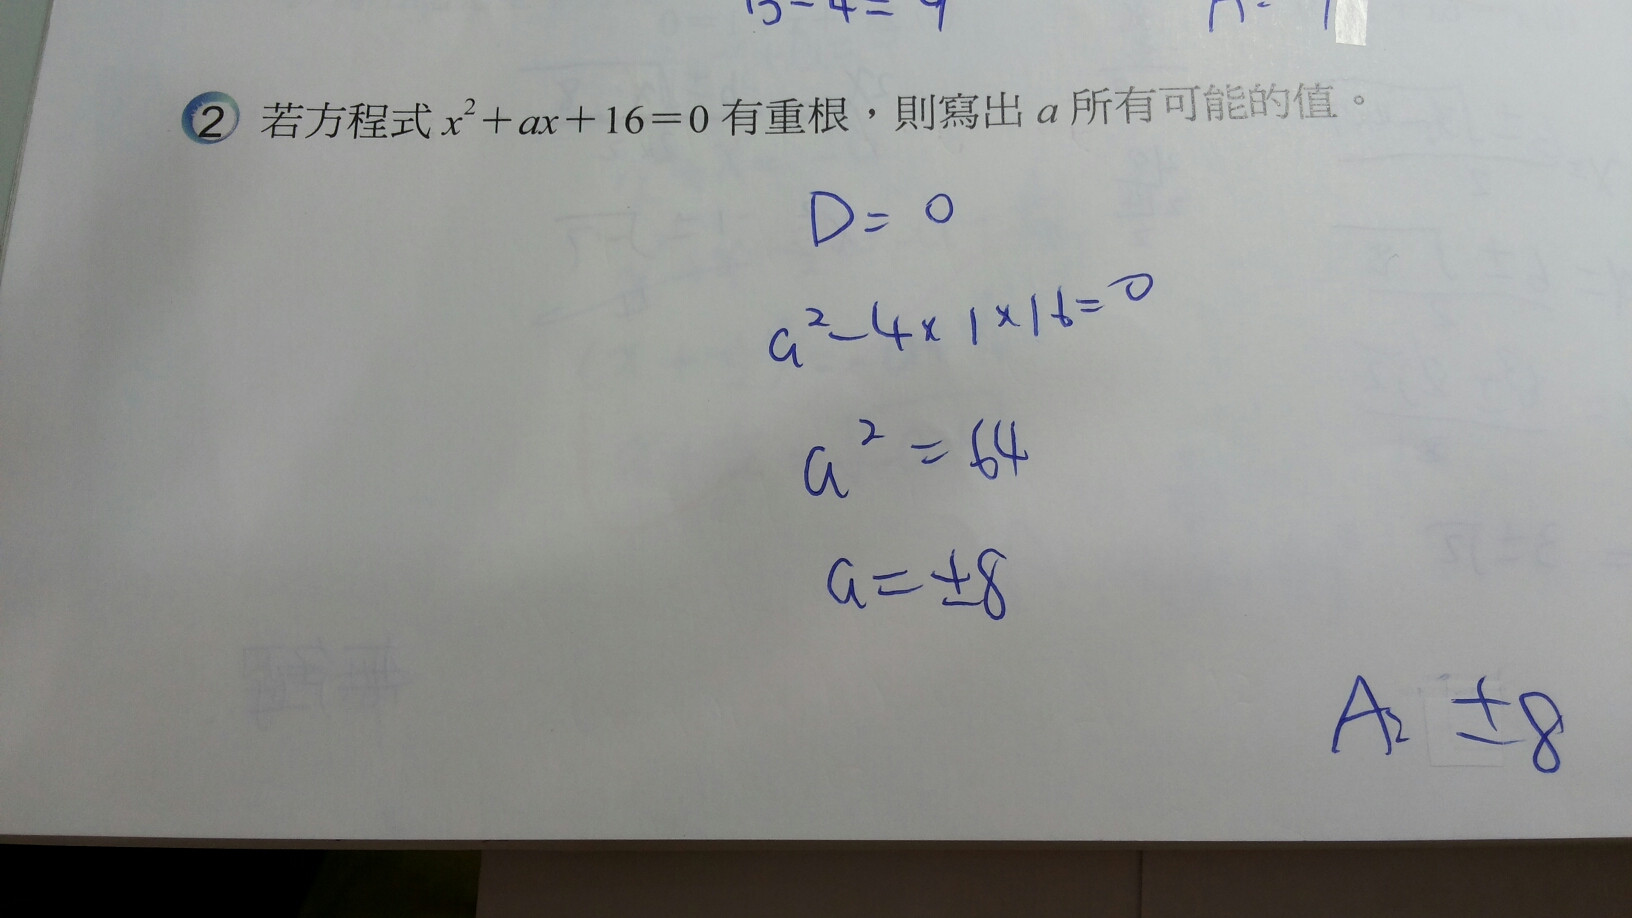 ② 若方程式 x²+ax+16=0 有重根，則寫出 a 所有可能的值。
D=0
a²-4×1×16=0
a²=64
a=±8
A: ±8